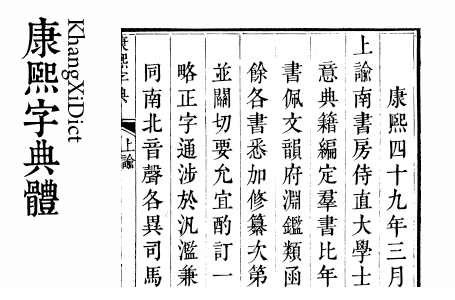 康熙字典體
KhangXiDict
康熙四十九年三月
上諭南書房侍直大學士
意典籍編定羣書比年
書佩文韻府淵鑑類函
餘各書悉加修纂次第
並關切要允宜酌訂一
略正字通涉於汎濫兼
同南北音聲各異司馬
康熙字典
上諭